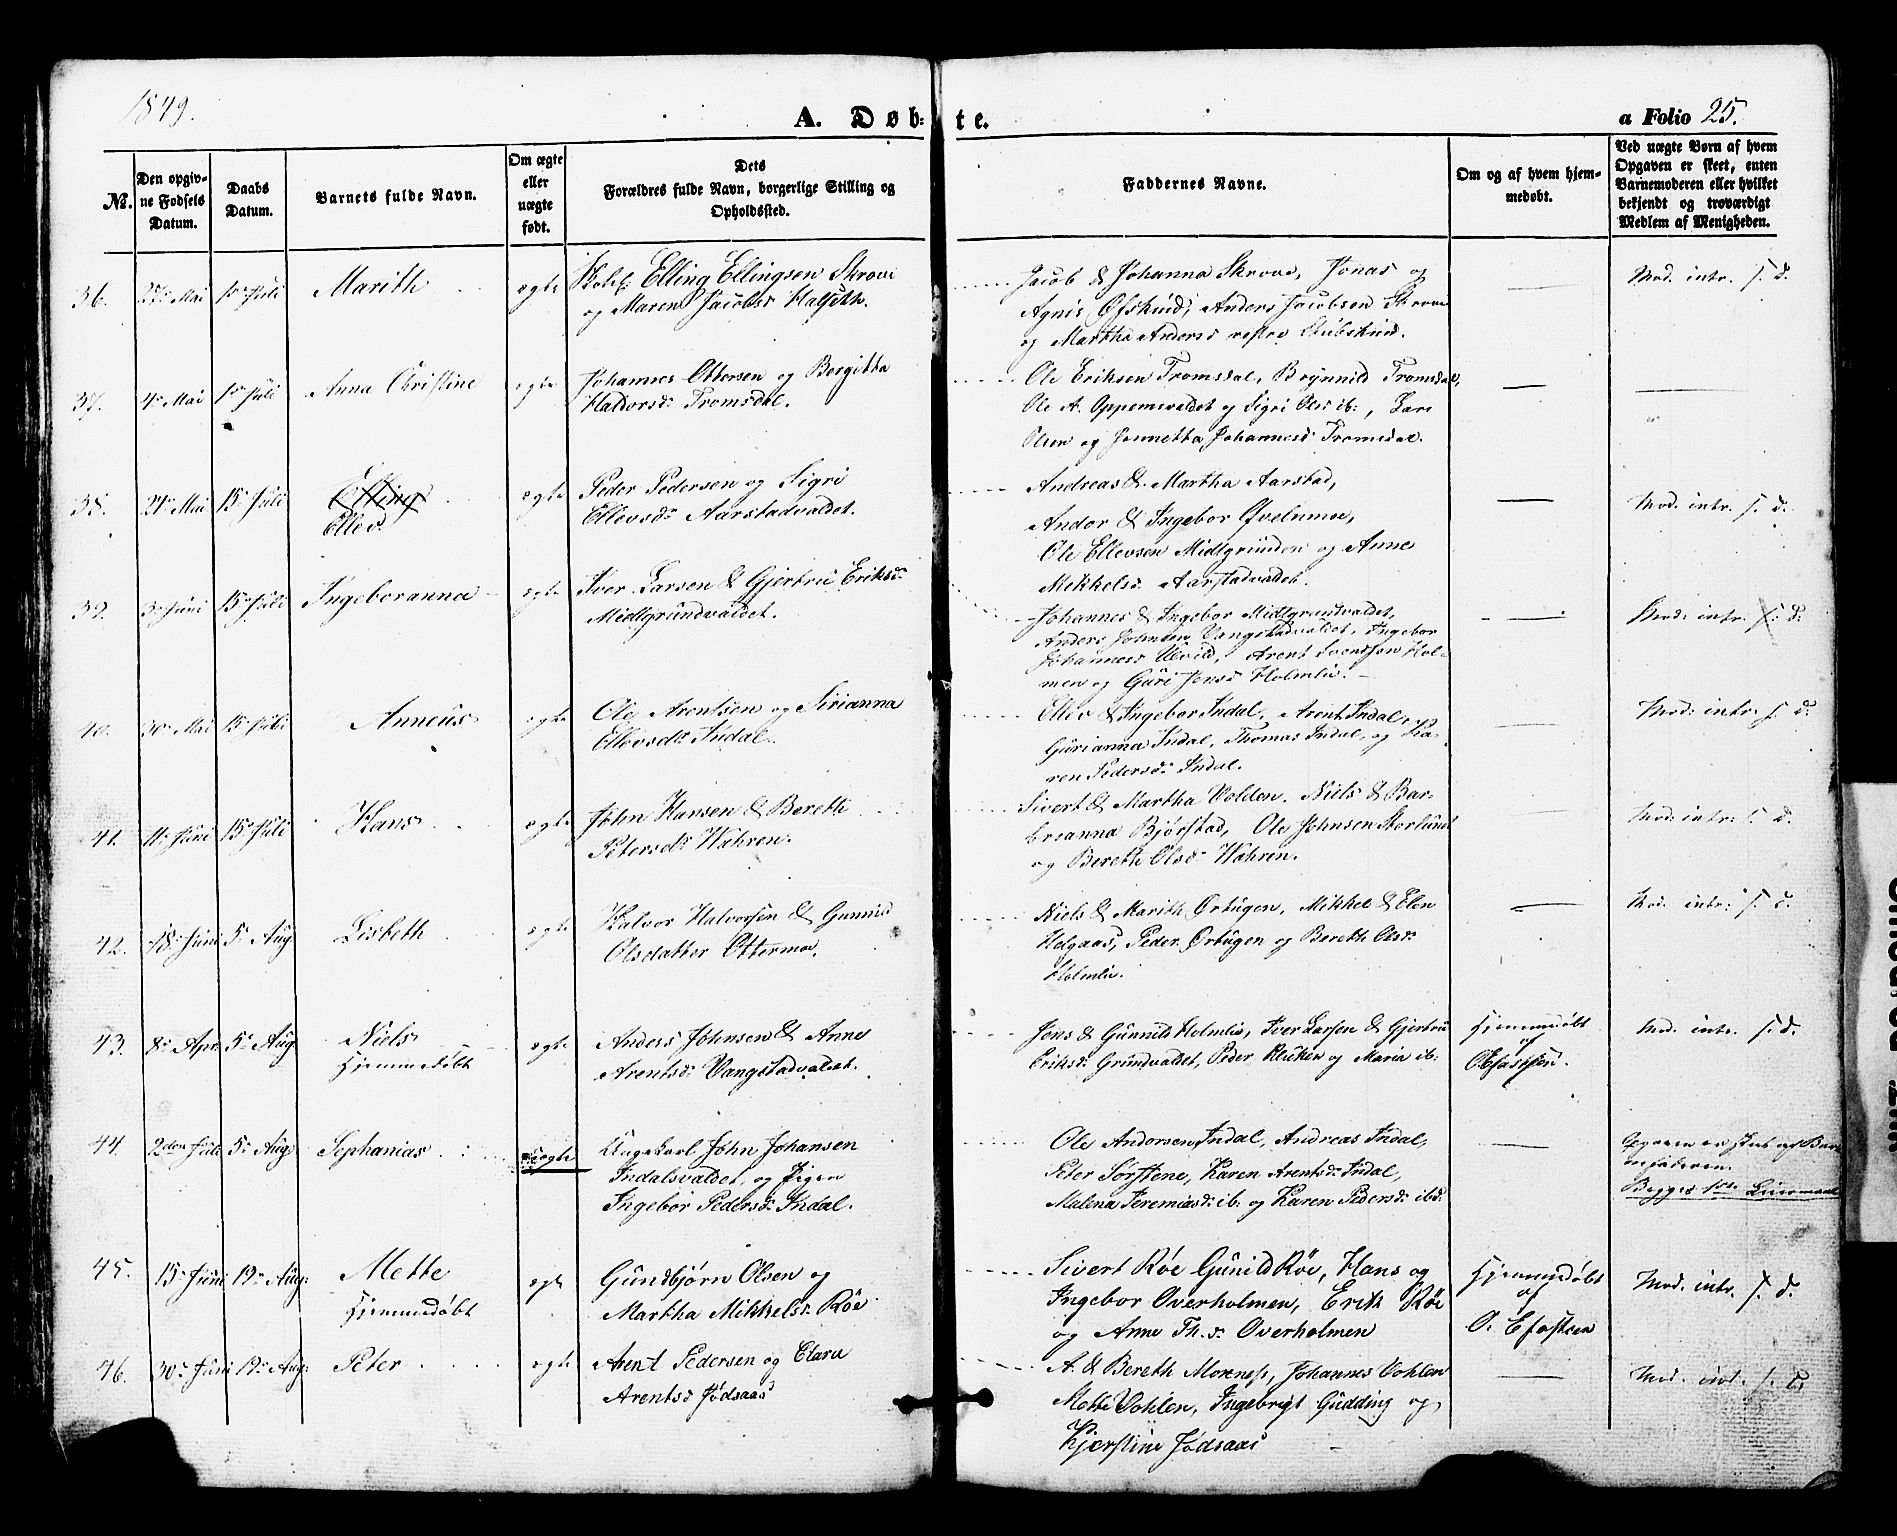 1849.
A. Døb-te.
a Folio 25.
No.
Den opgiv-
ne Fødsels
Datum.
Daabs
Datum.
Barnets fulde Navn.
Om ægte
eller
uægte
født.
Dets
Forældres fulde Navn, borgerlige Stilling og
Opholdssted.
Faddernes Navne.
Om og af hvem hjem-
medøbt.
Ved uægte Børn af hvem
Opgaven er skeet, enten
Barnemoderen eller hvilket
bekjendt og troværdigt
Medlem af Menigheden.
36. 27. Mai 1. Juli Marith ægte Elling Ellingsen Skrove
og Maren Jacobsd. Halseth.
Jacob & Johanna Skrove, Jonas og
Agnis Øfskind, Anders Jacobsen Skrove
og Martha Andersd vestre
Mod. intr. s. d.
37. 4. Mai 1. Juli Anna Christine ægte Johannes Ottersen og Bergitta
Haldorsd: Tromsdal.
Ole Eriksen Tromsdal, Brynnild Tromsdal,
Ole A. Oppemsvaldet og Sigri Olsd ib:, Lars
Olsen og Jonnetta Johannesd: Tromsdal.
38. 21. Mai 15. Juli Elling
Ellev. ægte Peder Pedersen og Sigri
Ellevsd: Aarstadvaldet.
Andreas & Martha Aarstad,
Andor & Ingebor Qvelume,
Ole Ellevsen Midlgrunden og Anne
Mikkelsd. Aarstadvaldet.
Mod. intr. s. d.
39. 3. Juni 15. Juli Ingeboranna ægte Iver Larsen & Gjertru Eriksd:
Midlgrundvaldet.
Johannes & Ingebor Midlgrundvaldet,
Anders Johnsen Vangstadvaldet, Ingebor
Johannesd Ulvild, Arent Svendsen Hol-
men og Guri Jensd Holmlie.
Mod: intr. s: d:
40. 30. Mai 15. Juli Anneus ægte Ole Arentsen og Sirianna
Ellevsd: Indal.
Ellev & Ingebor Indal, Arent Indal,
Gurianna Indal, Thomas Indal, og Ka-
ren Pedersd: Indal.
Mod: intr: s. d.
41. 11. Juni 15. Juli Hans ægte John Hansen & Bereth
Petersd: Wahren.
Sivert & Martha Volden. Niels & Bar-
breanna Bjørstad, Ole Johnsen Storlund
og Bereth Olsd: Wahren.
Mod: intr: s. d.
42. 18. Juni 5. Aug Lisbeth ægte Halvor Halvorsen & Gunnild
Olsdatter Ottermoe.
Niels & Marith Ørtugen, Mikkel & Elen
Helgaas, Peder Ørtugen og Bereth Olsd:
Holmlie.
Mod. intr: s. d.
43. 8. Apr. 5. Aug Niels
Hjemmedøbt ægte Anders Johnsen & Anne
Arentsd: Vangstadvaldet.
Jens & Gunnild Holmlie, Iver Larsen & Gjertru
Eriksd: Grundvaldet, Peder og Maria ib:
Hjemmedøbt
af
Mod. intr. s. d.
44. 2den Juli 5. Aug Sephanias uægte Ungekarl John Johansen
Indalsvaldet, og Pigen
Ingebor Pedersd: Indal.
Ole Andersen Indal, Andreas Indal,
Peter Sørstene, Karen Arentsd: Indal,
Malena Jeremiasd: ib: og Karen Pedersd: ibd.
Opgaven er skeet af Bar-
nefaderen.
Begges 1ste Leiermaal
45. 15. Juni 19. Aug: Mette
Hjemmedøbt ægte Gundbjørn Olsen og
Martha Mikkelsd: Røe
Sivert Røe Gunild Røe, Hans og
Ingebor Overholmen, Erik Røe
og Anne Th.d: Overholmen
Hjemmedøbt
af
Mod. intr. s. d.
46. 30. Juni 19. Aug: Peter ægte Arent Pedersen og Elara
Arentsd Jødsaas
A. & Bereth Morknes, Johannes Vohlen
Mette Vohlen, Ingebrigt Gudding og
Kjerstine Jødsaas
Mod. intr. s. d.